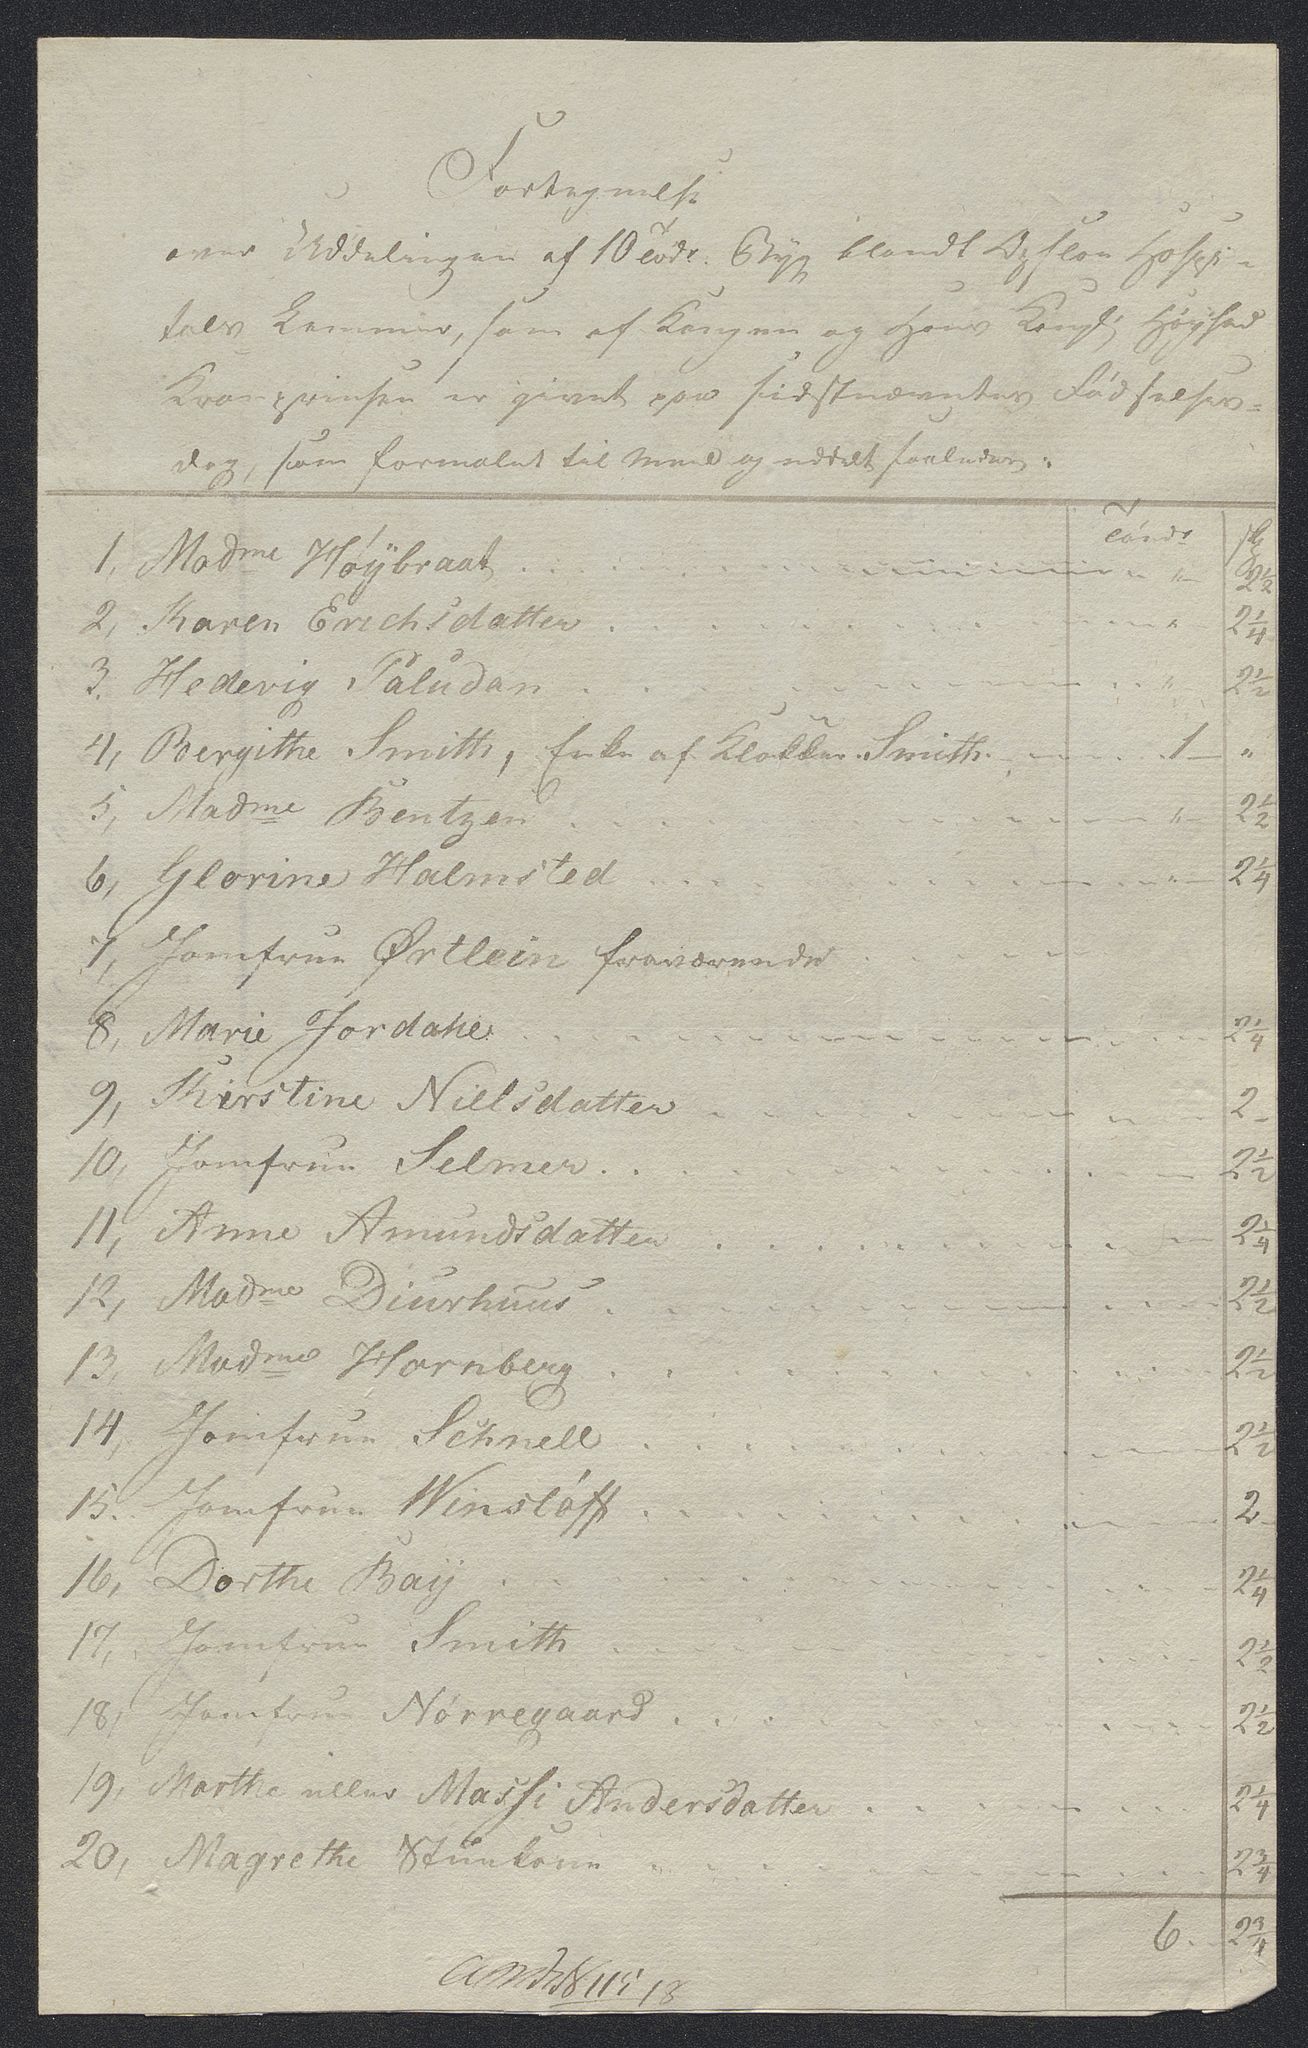 Fortegnelse
over Uddelingen af 10 Tödr. Byg blandt Opsloe Hospi-
tals Lemmer, som af Kongen og Hans Kongl. Høyhed
Kronprinsen er givet paa sidstnævntes Födselsv-
dag, som formalet til Meel og uddelt saaledes:
Tönde Skp
1, Madme Höÿbraat . . . " 2½
2, Karen Erichsdatter . . . " 2¼
3. Hedevig Paludan . . . " 2½
4, Bergithe Smith, Enke af Klokker Smith . . . 1 "
5, Madme Bentzen . . . " 2½
6, Glorine Halmsted . . . " 2¼
7, Jomfrue Ørtlein fraværende . . .
8, Marie Jordahe . . . 2¼
9, Kirstine Nielsdatter . . . 2
10, Jomfrue Selmer . . . 2½
11, Anne Amundsdatter . . . 2¼
12, Madme Diurhuus . . . 2½
13, Madme Hornberg . . . 2½
14, Jomfrue Schnell . . . 2½
15. Jomfrue Winslöff . . . 2
16, Dorthe Baÿ . . . 2¼
17, Jomfrue Smith . . . 2½
18, Jomfrue Nörregaard . . . 2½
19, Marthe eller Massi Andersdatter . . . 2¼
20, Magrethe . . . 2¾
6. 2¾